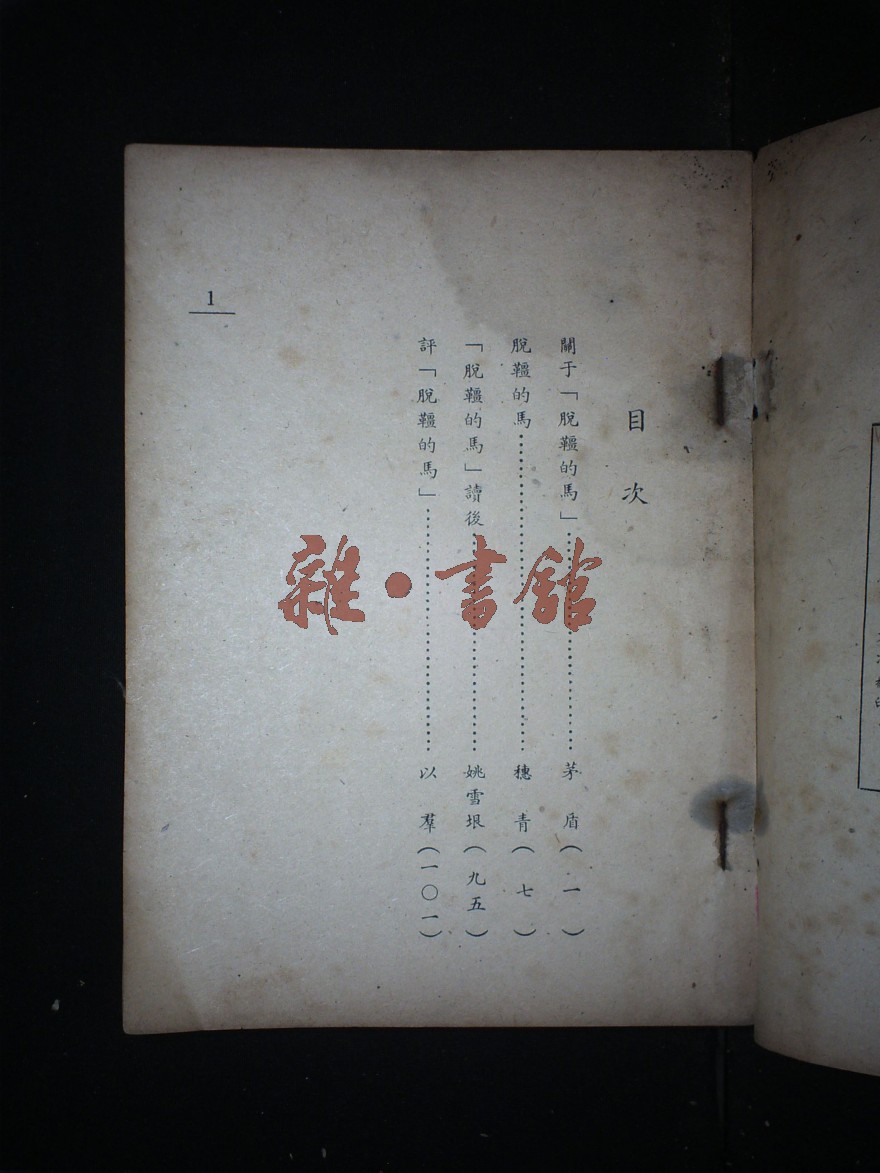 目次
關于「脫韁的馬」……………………茅盾(一)
脫韁的馬……………………穗青(七)
「脫韁的馬」讀後……………………姚雪垠(九五)
評「脫韁的馬」……………………以羣(一〇一)
1
雜·書館